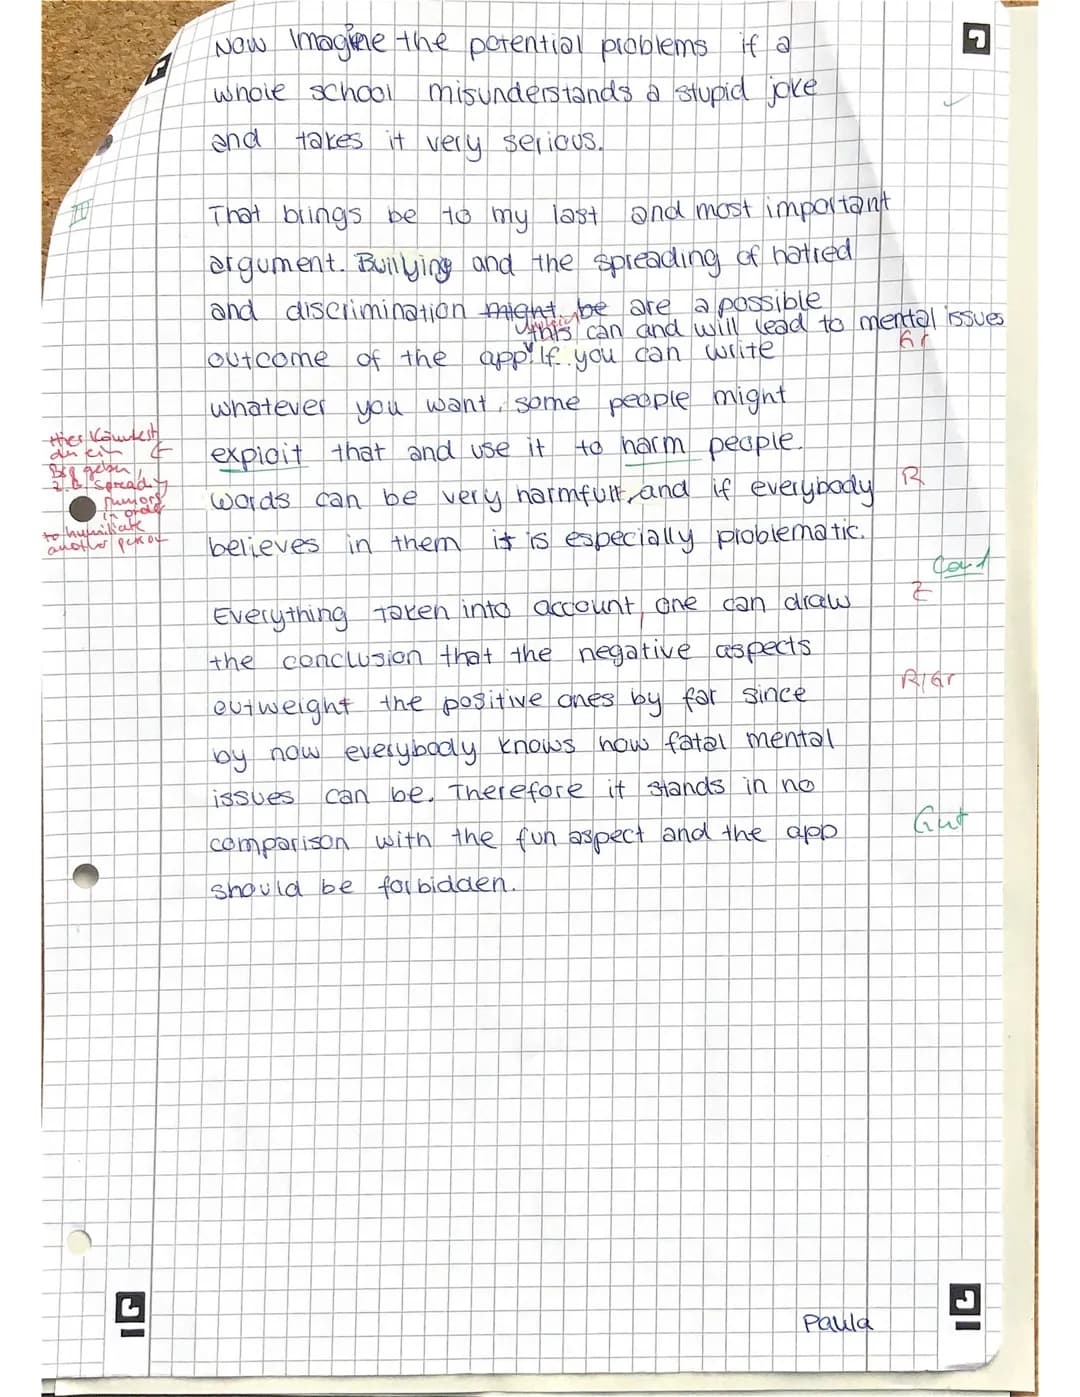 Now Imagine the potential problems if a
whole school misunderstands a stupid joke
and takes it very serious.
III
That brings be to my last and most important
argument. Bullying and the spreading of hatred
and discrimination might be are a possible
this can and will lead to mental issues
Gr
outcome of the app. If you can write
whatever you want, some people might
exploit that and use it to harm people.
Hier könntest
du ein
Bsp geben,
z.B. spreading
rumors
in order
to humiliate
another person
words can be very harmfull, and if everybody
R
believes in them it is especially problematic.
Z
Everything taken into account, one can draw
the conclusion that the negative aspects
outweight the positive ones by far since
R/Gr
by now everybody knows how fatal mental
issues can be. Therefore it stands in no
comparison with the fun aspect and the app
Gut
should be forbidden.
Paula